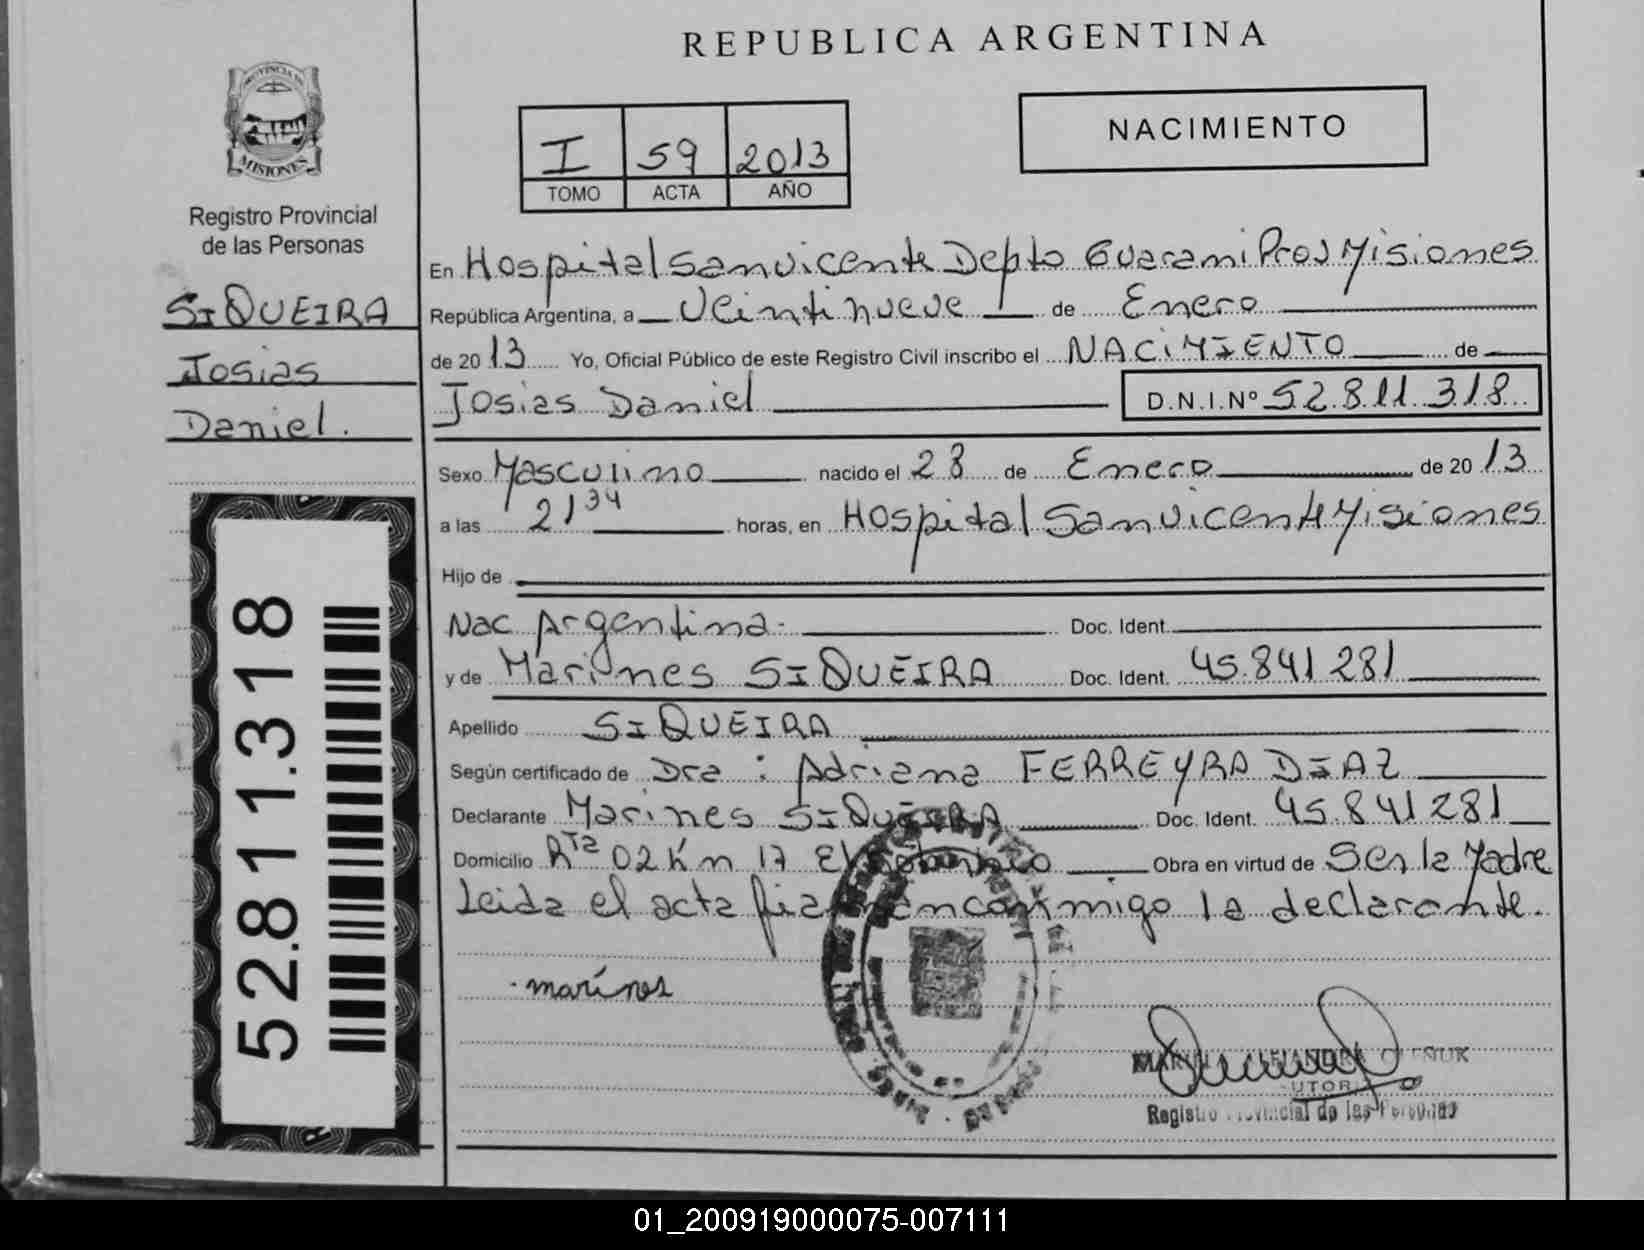 REPUBLICA ARGENTINA
PROVINCIA DE
MISIONES
Registro Provincial
de las Personas
SIQUEIRA
Josias
Daniel.
52.811.318
I 59 2013
TOMO ACTA AÑO
NACIMIENTO
En Hospital San vicente Depto Guarami Prov Misiones
República Argentina, a Veintinueve de Enero
de 20 13 Yo, Oficial Público de este Registro Civil inscribo el NACIMIENTO de
Josias Daniel D.N.I.Nº 52.811.318
Sexo Masculino nacido el 28 de Enero de 20 13
a las 21 34 horas, en Hospital San vicente Misiones
Hijo de
Nac Argentina. Doc. Ident.
y de Marines SIQUEIRA Doc. Ident. 45.841 281
Apellido SIQUEIRA
Según certificado de Dra : Adriana FERREYRA DIAZ
Declarante Marines SIQUEIRA Doc. Ident. 45.841 281
Domicilio Rta 02 Km 17 El Obra en virtud de Ser la Madre
Leida el acta firman conmigo la declarante.
marines
Registro Provincial de las Personas
01_200919000075-007111